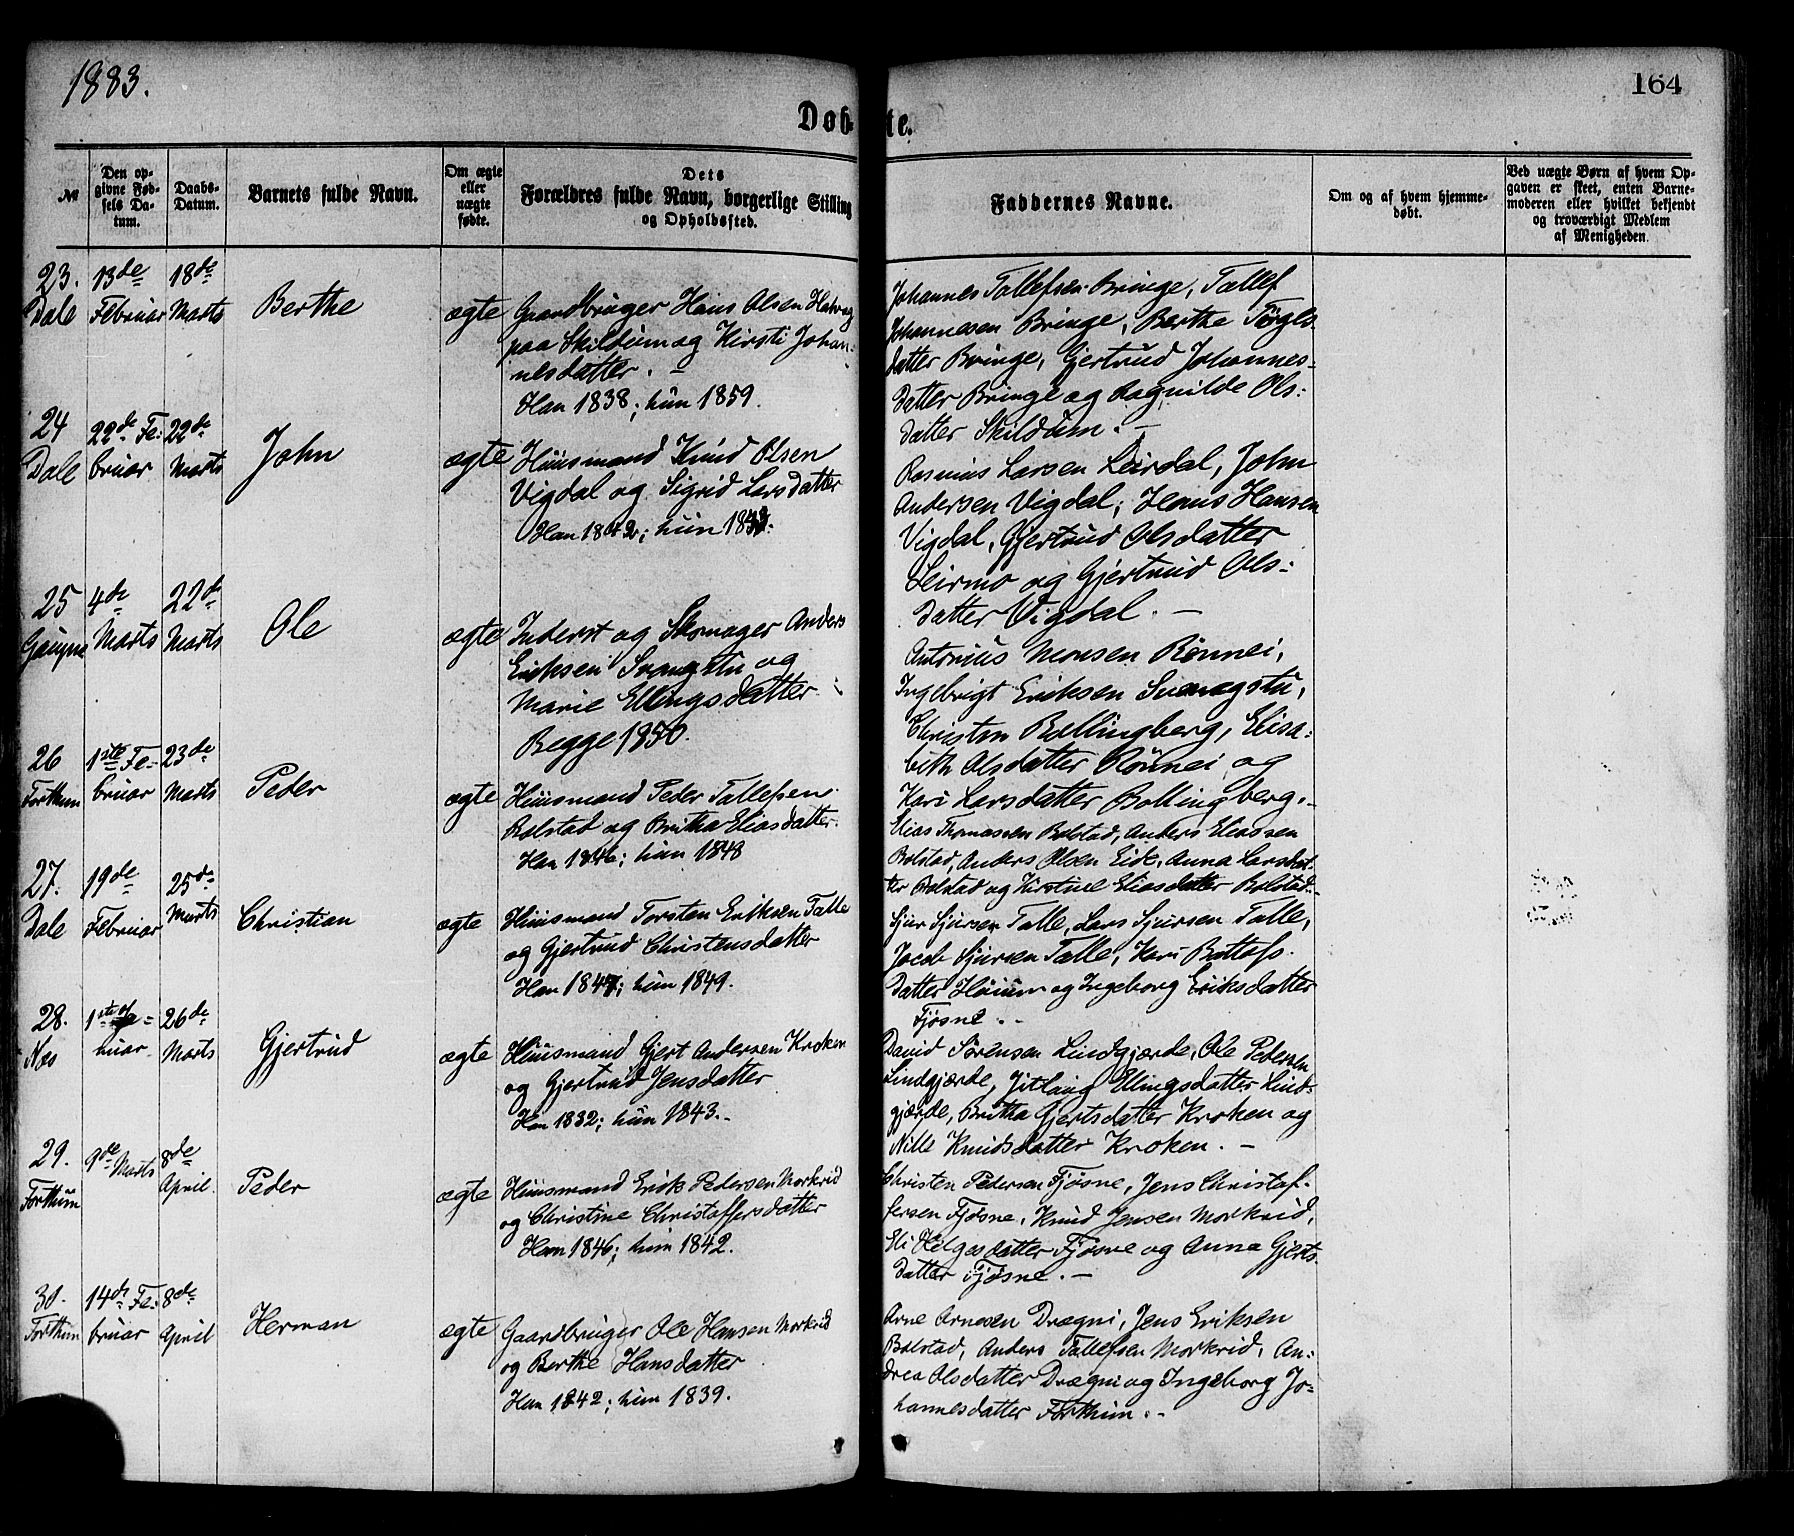 1883.
164
Døbte.
№
Den op-
givne Fød-
sels Da-
tum.
Daabs-
Datum.
Barnets fulde Navn.
Om ægte
eller
uægte
fødte.
Dets
Forældres fulde Navn, borgerlige Stilling
og Opholdssted.
Faddernes Navne.
Om og af hvem hjemme-
døbt.
Ved uægte Børn af hvem Op-
gaven er skeet, enten Barne-
moderen eller hvilket bekjendt
og troværdigt Medlem
af Menigheden.
23.
Dale
13de
Februar
18de
Marts
Berthe
ægte
Gaardbruger Hans Olsen
paa Skildum og Kirsti Johan-
nesdatter. -
Han 1838; hun 1859.
Johannes Tollefsen Bringe, Tollef
Johannesen Bringe, Berthe
datter Bringe, Gjertrud Johannes-
datter Bringe og Ragnilde Ols-
datter Skildum. -
24
Dale
22de Fe-
bruar
22de
Marts
John
ægte
Huusmand Knud Olsen
Vigdal og Sigrid Larsdatter
Han 1842; hun
Rasmus Larsen Leirdal, John
Andersen Vigdal, Hans Hansen
Vigdal, Gjertrud Olsdatter
Leirmo og Gjertrud Ols-
datter Vigdal. -
25
Gaupne
4de
Marts
22de
Marts
Ole
ægte
Inderst og Skomager Anders
Eriksen og
Marie Ellingsdatter.
Begge 1850.
Antonius Monsen Rønnei,
Ingebrigt Eriksen
Christen Bollingberg, Elisa-
beth Olsdatter Rønnei og
Kari Larsdatter Bollingberg. -
26
Forthun
1ste Fe-
bruar
23de
Marts
Peder
ægte
Huusmand Peder Tollefsen
Bolstad og Britha Eliasdatter.
Han 1846; hun 1848
Elias Thomassen Bolstad, Anders Eliassen
Bolstad, Anders Olsen Eide, Anna Larsdat-
ter Bolstad og Kirstine Eliasdatter Bolstad. -
27.
Dale
19de
Februar
25de
Marts
Christian
ægte
Huusmand Torsten Eriksen Talle
og Gjertrud Christensdatter
Han 1847; hun 1849.
Sjur Sjursen Talle, Lars Sjursen Talle,
Jacob Sjursen Talle, Kari Bottofs-
datter Høium og Ingeborg Eriksdatter
Fjøsne. -
28.
Næs
1ste
bruar
26de
Marts
Gjertrud
ægte
Huusmand Gjert Andersen Kroken
og Gjertrud Jensdatter
Han 1832; hun 1843. -
David Sørensen Lindgjærde, Ole Pedersen
Lindgjærde, Jitlaug Ellingsdatter Lind-
gjærde, Britha Gjertsdatter Kroken og
Nille Knudsdatter Kroken. -
29.
Forthun
9de Marts
8de
April.
Peder
ægte
Huusmand Erik Pedersen Morkrid
og Christine Christoffersdatter
Han 1846; hun 1842.
Christen Pedersen Fjøsne, Jens Christof-
fersen Fjøsne, Knud Jensen Morkrid,
Eli Helgesdatter Fjøsne og Anna Gjerts-
datter Fjøsne. -
30.
Forthun
14de Fe-
bruar
8de
April
Herman
ægte
Gaardbruger Ole Hansen Morkrid
og Berthe Hansdatter
Han 1842; hun 1839.
Arne Arnesen Drægni, Jens Eriksen
Bolstad, Anders Tollefsen Morkrid, An-
drea Olsdatter Drægni og Ingeborg Jo-
hannesdatter Forthun. -